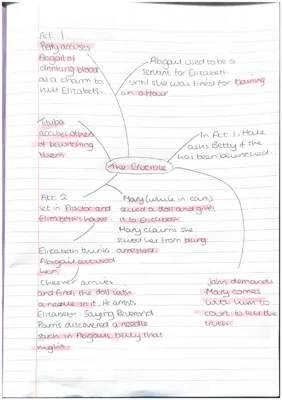 Act 1
Betty accuses
Abigail of
drinking blood
as a charm to
kill Elizabeth.
Abigail used to be a
servant for Elizabeth
until she was fired for having
an affair
Tituba
accuses others
of bewitching
them
In Act 1, Hale
asks Betty if she
has been bewitched
The Crucible
Act 2
set in Proctor and
Elizabeth's house
Elizabeth thinks
Abigail accused
her.
Cheever arrives
and finds the doll with
a needle in it. He arrests
Elizabeth. Saying Reverend
Parris discovered a needle
stuck in Abigail's belly that
night.
Mary (while in court)
sewed a doll and gives
it to Elizabeth
Mary claims she
saved her from being
arrested.
John demands
Mary comes
with him to
court to tell the
truth.